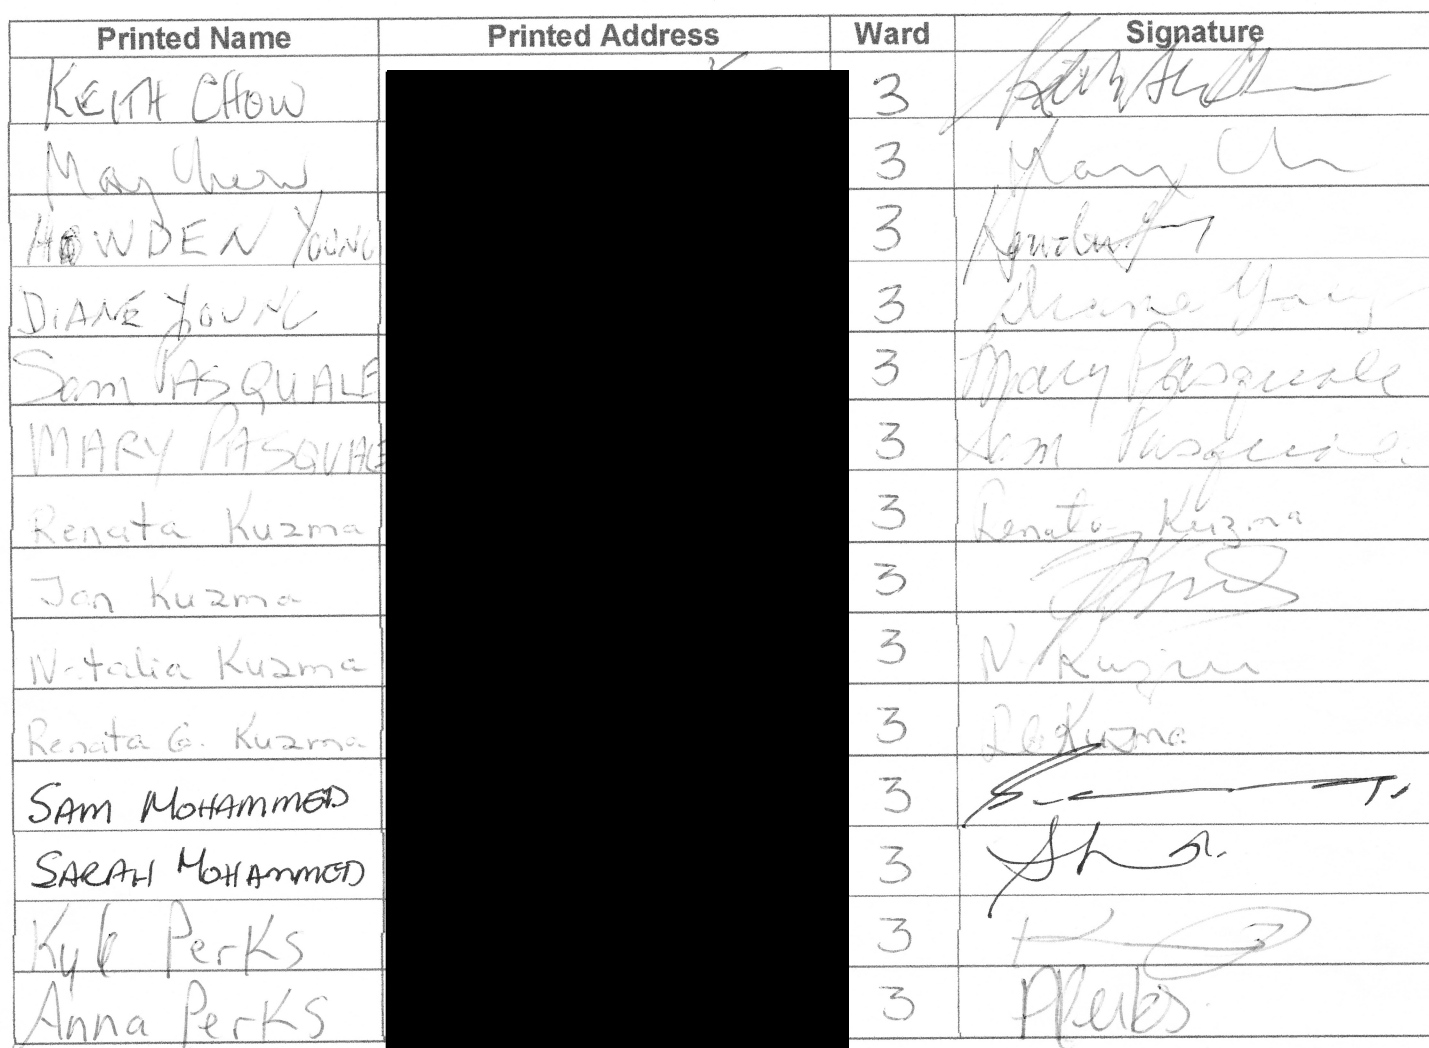 Printed Name Printed Address Ward Signature
KEITH CHOW 3
May Chow 3 Mary
HOWDEN YOUNG 3
DIANE YOUNG 3 Diane Young
Sam PASQUALE 3 Mary Pasquale
MARY PASQUALE 3 Sam Pasquale
Renata Kuzma 3 Renata Kuzma
Jan Kuzma 3
Natalia Kuzma 3 N. Kuzma
Renata G. Kuzma 3 RG Kuzma
SAM MOHAMMED 3
SARAH MOHAMMED 3
Kyle Perks 3
Anna Perks 3 APerks